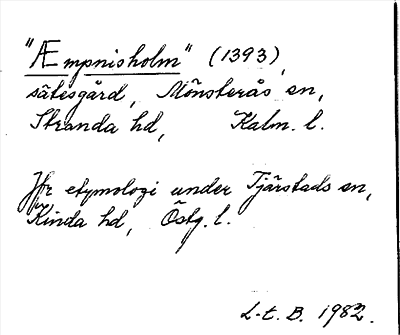 "Æmpnisholm" (1393),
sätesgård, Mönsterås sn,
Stranda hd, Kalm. l.
Jfr etymologi under Tjärstads sn,
Kinda hd, Östg. l.
L-t. B. 1982.